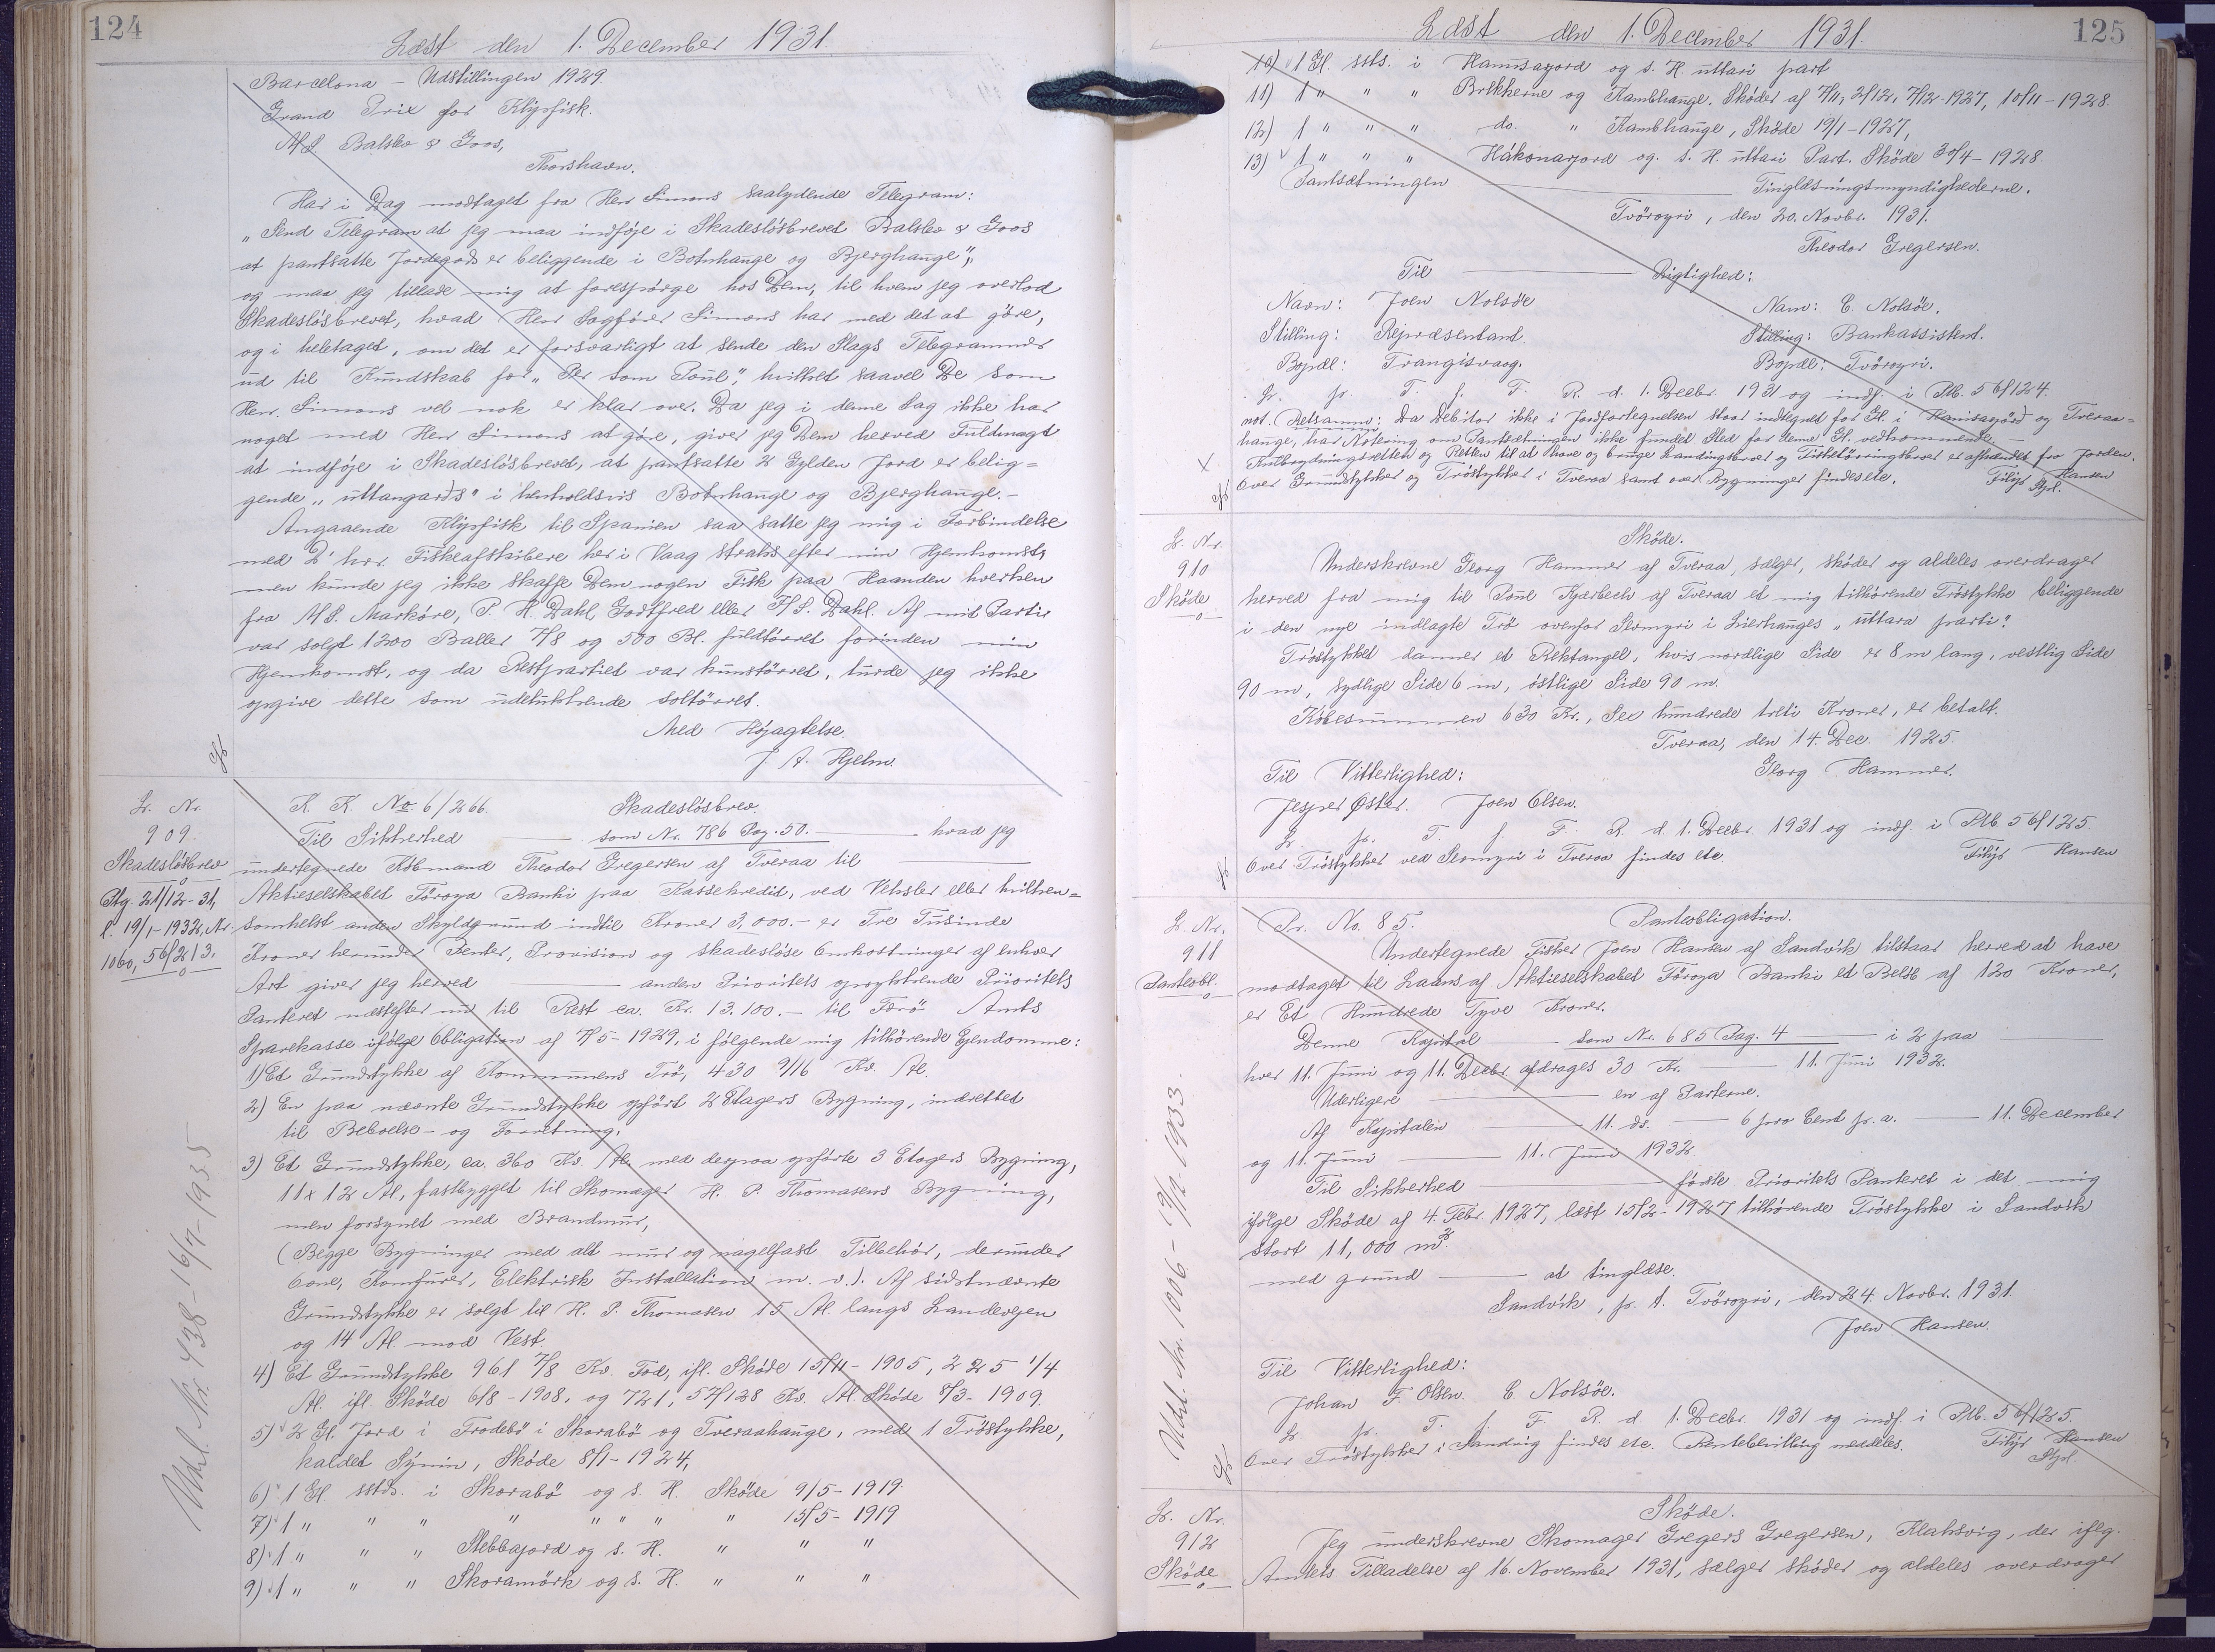 124
Læst den 1. December 1931.
Barcelona – Udstillingen 1929.
Grand Prix for Klipfisk.
A/S. Balslev & Goos,
Thorshavn.
Har i Dag modtaget fra Herr Simons saalydende Telegram:
„Send Telegram at jeg maa indføje i Skadesløsbrevet Balslev & Goos
at pantsatte Jordegods er beliggende i Botnhauge og Bjerghauge",
og maa jeg tillade mig at forespørge hos Dem, til hvem jeg overlod
Skadesløsbrevet, hvad Herr Sagfører Simons har med det at göre,
og i heletaget, om det er forsvarligt at sende den Slags Telegrammer
ud til Kundskab for „Per som Poul", hvilket saavel De som
Herr. Simons vel nok er klar over. Da jeg i denne Sag ikke har
noget med Herr Simons at göre, giver jeg Dem herved Fuldmagt
at indføje i Skadesløsbrevet, at pantsatte 2 Gylden Jord er belig=
gende „uttangards" i henholdsvis Botnhauge og Bjerghauge.–
Angaaende Klipfisk til Spanien saa satte jeg mig i Forbindelse
med D'hrr. Fiskeafskibere her i Vaag straks efter min Hjemkomst,
men kunde jeg ikke skaffe Dem nogen Fisk paa Haanden hverken
fra A/S. Marköre, P. H. Dahl, Godtfred eller F/S. Dahl. Af mit Parti
var solgt 1200 Baller 7/8 og 500 Bl. fuldtörret forinden min
Hjemkomst, og da Restpartiet var kunstörret, turde jeg ikke
opgive dette som udelukkende soltörret.
Med Højagtelse.
J. A. Hjelm.
L. Nr.
909.
Skadesløsbrev
Ptg. 21/12-31,
l. 19/1-1932, Nr.
1060, 56/213.
Udsl. Nr. 438-16/7-1935
K. K. No. 6/266. Skadesløsbrev.
Til Sikkerhed — som Nr. 786 Pag. 50. — hvad jeg
undertegnede Købmand Theodor Gregersen af Tveraa til
Aktieselskabet Föroya Banki paa Kassekredit, ved Veksler eller hvilken=
somhelst anden Skyldgrund indtil Kroner 3,000.– er Tre Tusinde
Kroner herunder Renter, Provision og skadesløse Omkostninger af enhver
Art giver jeg herved — anden Prioritets oprykkende Prioritets
Panteret næstefter nu til Rest ca. Kr. 13.100.– til Færø Amts
Sparekasse ifølge Obligation af 7/5-1929, i følgende mig tilhörende Ejendomme:
1) Et Grundstykke af Kommunens Trö, 430 9/16 Kv. Al.
2) En paa nævnte Grundstykke opført 2 Etagers Bygning, indrettet
til Beboelse – og Forretning,
3) Et Grundstykke, ca. 360 Kv. Al. med derpaa opførte 3 Etagers Bygning,
11 x 12 Al., fastbygget til Skomager H. P. Thomasens Bygning,
men forsynet med Brandmur,
(Begge Bygninger med alt mur og nagelfast Tilbehör, derunder
Ovne, Komfurer, Elektrisk Installation m. v.). Af sidstnævnte
Grundstykke er solgt til H. P. Thomasen 15 Al. langs Landevejen
og 14 Al. mod Vest.
4) Et Grundstykke 961 7/8 Kv. Fod, ifl. Sköde 15/11-1905, 225 1/4
Al. ifl. Sköde 6/8-1908, og 721, 57/128 Kv. Al. Sköde 8/3-1909.
5) 2 Gl. Jord i Frodebö i Skorabö og Tveraahauge, med 1 Tröstykke,
kaldet Sýnin, Sköde 8/1-1924,
6) 1 Gl. sstds. i Skorabö og s. H. Sköde 9/5-1919.
7) 1 " " " " " " " " 15/5-1919
8) 1 " " " Stebbajord og s. H. " " "
9) 1 " " " Skoramörk og s. H. " " "
Læst den 1. December 1931.
125
10) 1 Gl. ssts. i Hannsajord og s. H. uttari part
11) 1 " " " Brekkerne og Kambhauge. Sköder af 7/11, 2/12, 7/12-1927, 10/11-1928.
12) 1 " " " do. " Kambhauge, Sköde 19/1-1927,
13) 1 " " " Håkonarjord og s. H. uttari Part. Sköde 30/4-1928.
Pantsætningen — Tinglæsningsmyndighederne.
Tvöroyri, den 20. Novbr. 1931.
Theodor Gregersen.
Til — Rigtighed:
Navn: Joen Nolsöe Navn: E. Nolsöe.
Stilling: Repræsentant. Stilling: Bankassistent.
Bopæl: Trangisvaag. Bopæl: Tvöroyri.
L. pr. T. f. F. R. d. 1. Decbr 1931 og indf. i Ptb. 56/124.
not. Retsanm: Da Debitor ikke i Jordfortegnelsen staar indtegnet for Gl. i Hannisajörd og Tveraa=
hauge, har Notering om Pantsætningen ikke fundet Sted for denne Gl. vedkommende. –
x Kulbrydningsretten og Retten til at have og bruge Landingsbroer og Fisketörringsbroer er afhændet fra Jorden.
Over Grundstykker og Tröstykker i Tveraa samt over Bygninger findes etc. Filip Hansen
Stpl.
L. Nr.
910
Sköde
Sköde.
Underskrevne Georg Hammer af Tveraa, sælger, sköder og aldeles overdrager
herved fra mig til Poul Kjærbech af Tveraa et mig tilhörende Tröstykke beliggende
i den nye indlagte Trö ovenfor Stomyri i Lierhauges „uttara parti".
Tröstykket danner et Rektangel, hvis nordlige Side er 8 m lang, vestlig Side
90 m, sydlige Side 6 m, østlige Side 90 m.
Köbesummen 630 Kr., Sex hundrede treti Kroner, er betalt.
Tveraa, den 14. Dec. 1925.
Til Vitterlighed: Georg Hammer.
Jesper Øster. Joen Olsen.
L. pr. T. f. F. R. d. 1. Decbr. 1931 og indf. i Ptb 56/125
Over Tröstykker ved Stomyri i Tveraa findes etc. Filip Hansen
L. Nr.
911
Panteobl.
Udsl. Nr. 1006 - /12-1933.
Pr. No. 85. Panteobligation.
Undertegnede Fisker Joen Hansen af Sandvík tilstaar herved at have
modtaget til Laans af Aktieselskabet Föroya Banki et Beløb af 120 Kroner,
er Et Hundrede Tyve Kroner.
Denne Kapital — som Nr. 685 Pag. 4 — i 2 paa
hver 11. Juni og 11. Decbr afdrages 30 Kr. — 11. Juni 1932.
Yderligere — en af Parterne.
Af Kapitalen — 11. ds. — 6 pro Cent p. a. — 11. December
og 11. Juni — 11. Juni 1932.
Til Sikkerhed — første Prioritets Panteret i det mig
ifølge Sköde af 4. Febr. 1927, læst 15/2-1927 tilhörende Tröstykke i Sandvík
stort 11,000 m².
med grund — at tinglæse.
Sandvík, p. t. Tvöroyri, den 24. Novbr. 1931.
Joen Hansen.
Til Vitterlighed:
Johan F. Olsen. E. Nolsöe.
L. pr. T. f. F. R. d. 1. Decbr. 1931 og indf. i Ptb. 56/125.
Over Tröstykker i Sandvig findes etc. Rentebevilling meddeles. Filip Hansen
Stpl.
L. Nr.
912
Sköde
Sköde.
Jeg underskrevne Skomager Gregers Gregersen, Klaksvig, der iflg.
Amtets Tilladelse af 16. November 1931, sælger sköder og aldeles overdrager